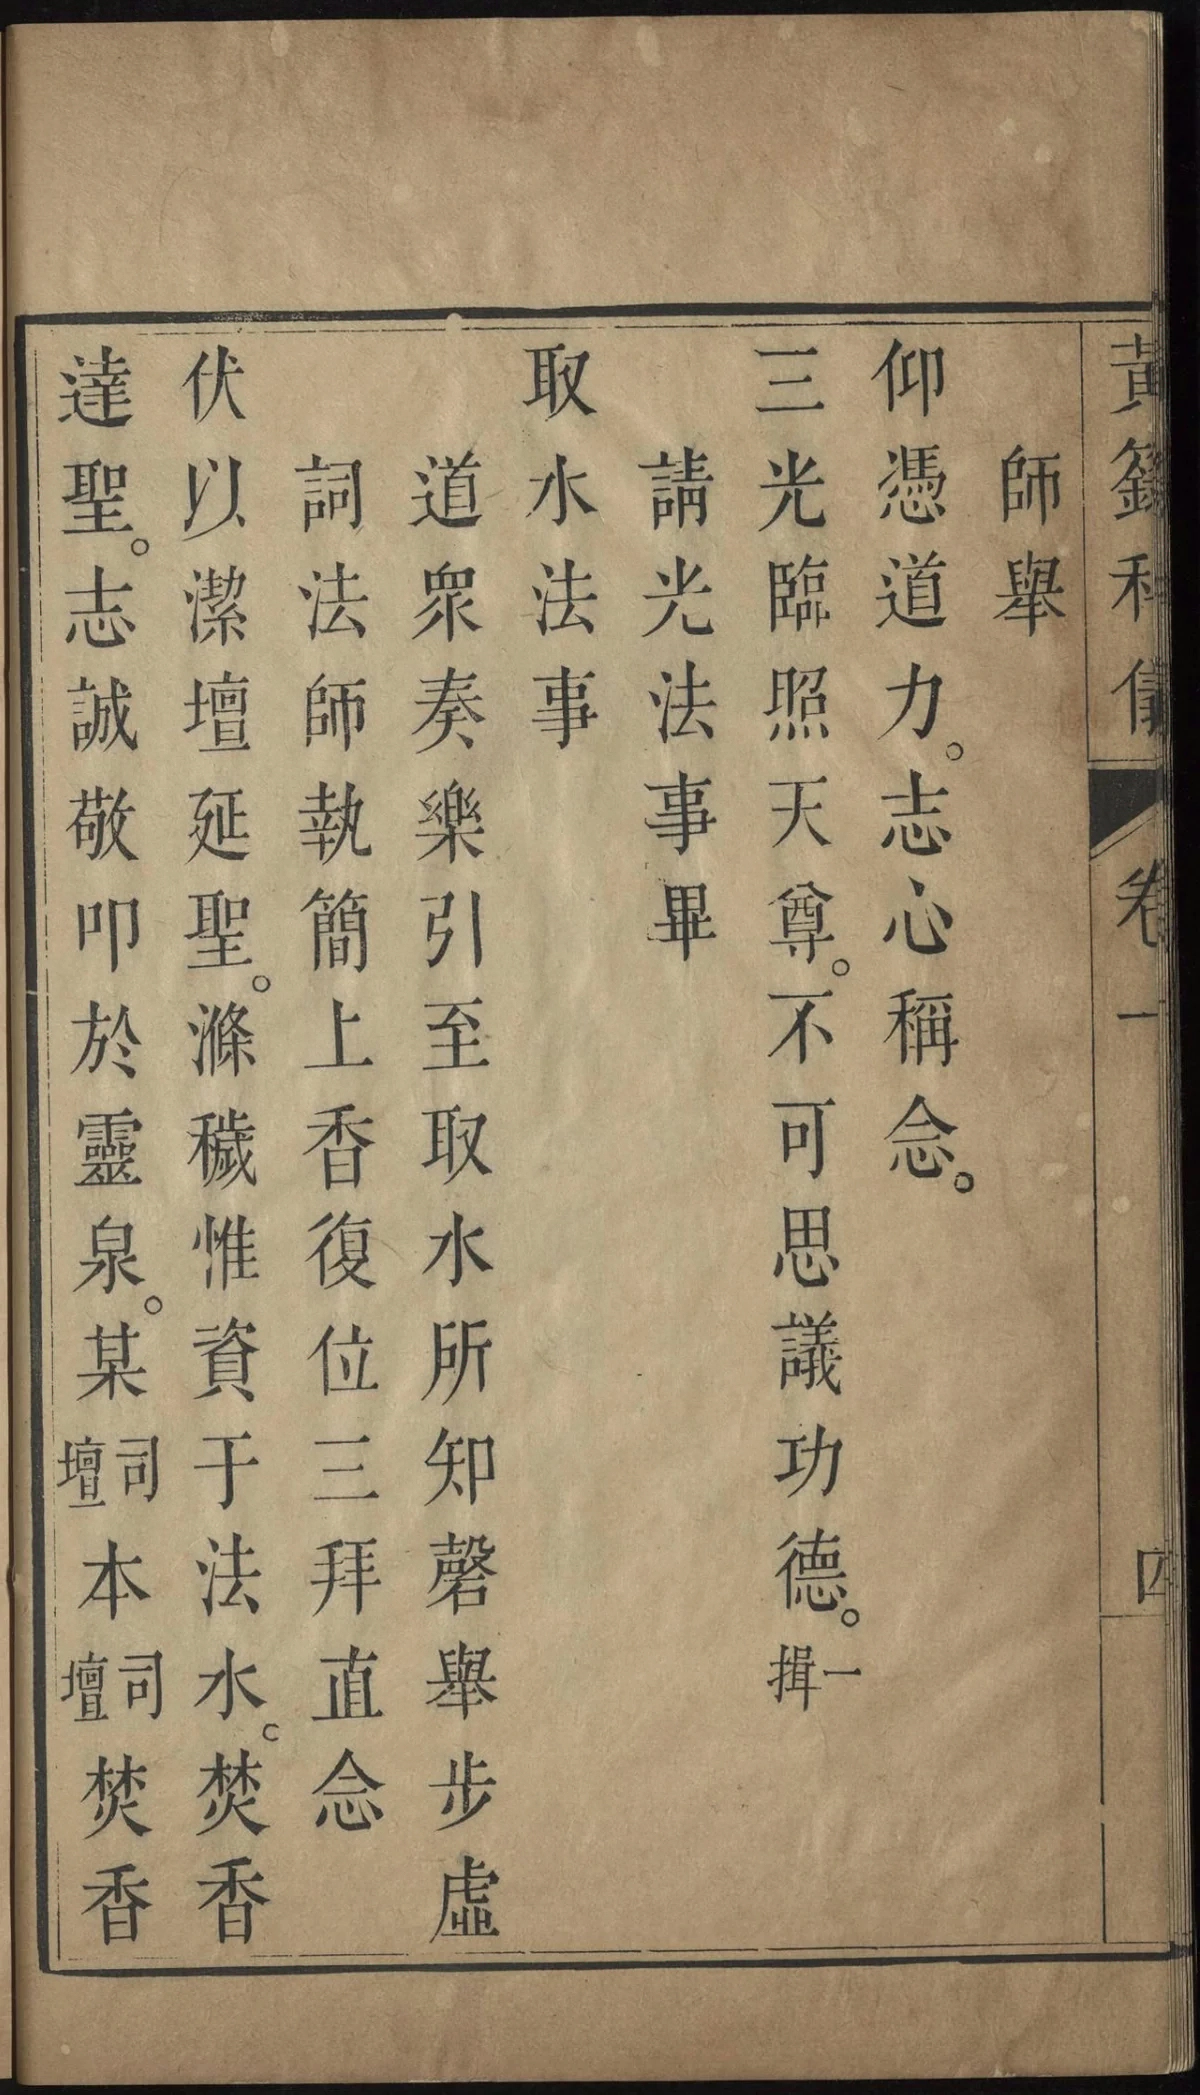 黃籙科儀 卷一 四
師舉
仰憑道力。志心稱念。
三光臨照天尊。不可思議功德。一揖
請光法事畢
取水法事
道眾奏樂引至取水所知磬舉步虛
詞法師執簡上香復位三拜直念
伏以潔壇延聖。滌穢惟資于法水。焚香
達聖。志誠敬叩於靈泉。某司壇本司壇焚香